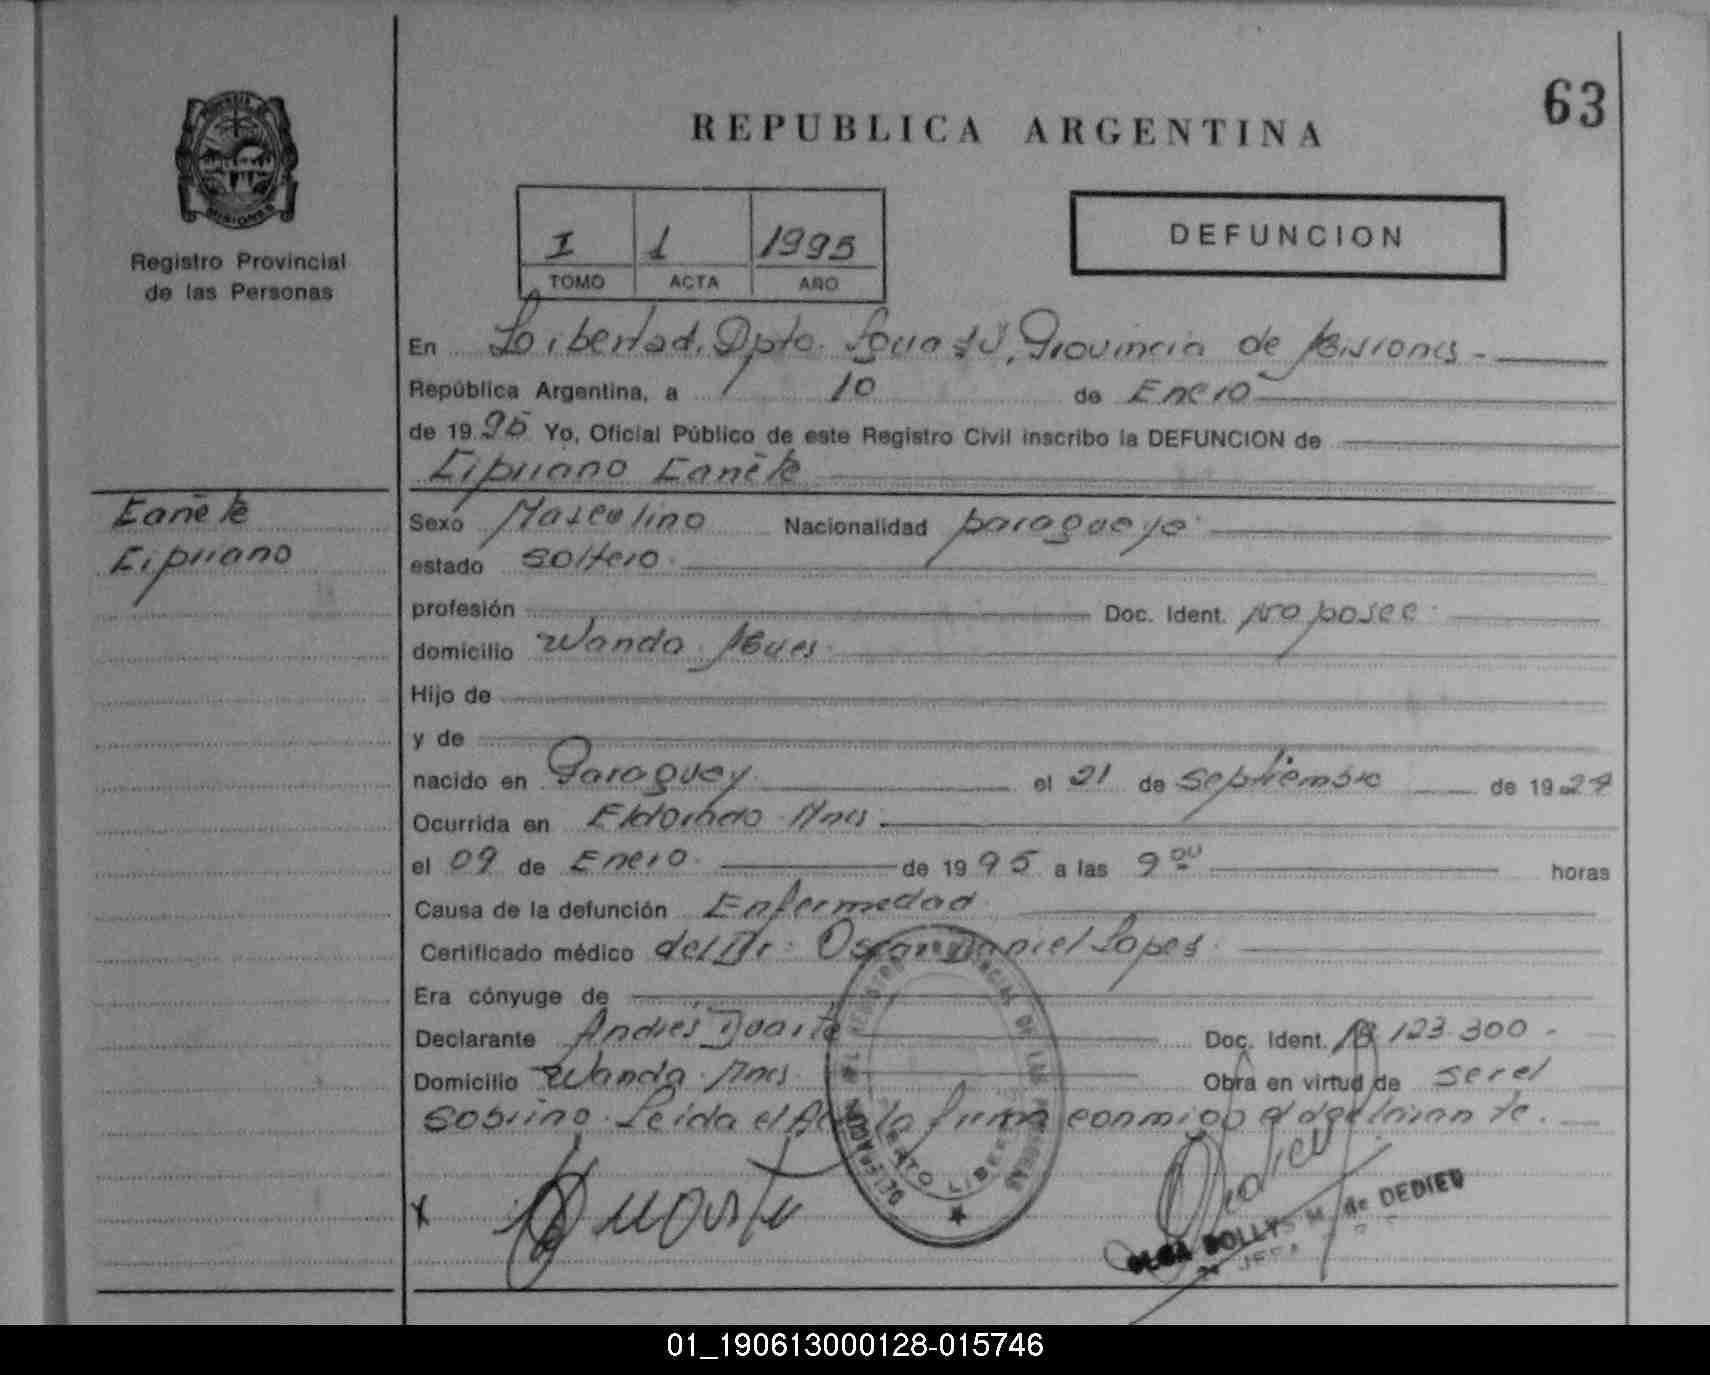 63
REPUBLICA ARGENTINA
MISIONES
Registro Provincial
de las Personas
I 1 1995
TOMO ACTA AÑO
DEFUNCION
En Libertad, Dpto. Iguazú, Provincia de Misiones -
República Argentina, a 10 de Enero
de 1995 Yo, Oficial Público de este Registro Civil inscribo la DEFUNCION de
Cipriano Cañete
Cañete
Cipriano
Sexo Masculino Nacionalidad paraguayo
estado soltero.
profesión Doc. Ident. no posee
domicilio Wanda. Mnes.
Hijo de
y de
nacido en Paraguay el 21 de septiembre de 19
Ocurrida en Eldorado Mnes
el 09 de Enero. de 1995 a las 9 00 horas
Causa de la defunción Enfermedad
Certificado médico del Dr. Oscar Daniel Lopes.
Era cónyuge de
Declarante Andrés Duarte Doc. Ident. 123.300 -
Domicilio Wanda. Mnes. Obra en virtud de ser el
sobrino. Leida el Acta la firma conmigo el declarante.
X Duarte
OLGA DOLLYS M. de DEDIEU
JEFA
01_190613000128-015746